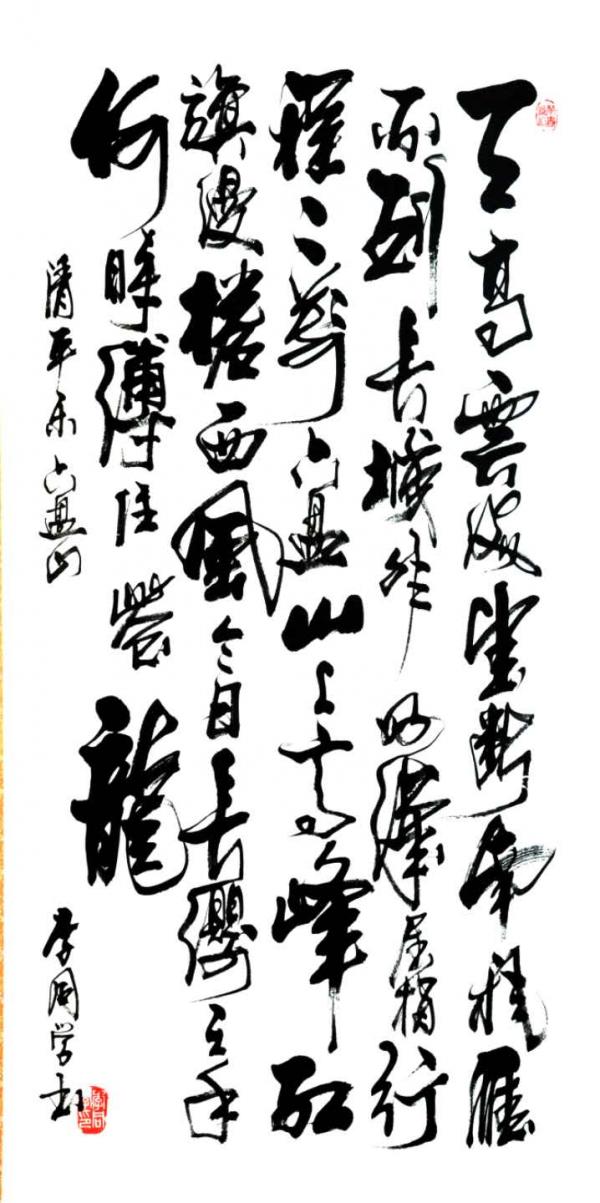 天高雲淡望断南飛雁
不到長城非好漢屈指行
程二萬六盘山上高峰紅
旗漫捲西風今日長纓在手
何時縛住蒼龍
清平乐六盘山
李同学书